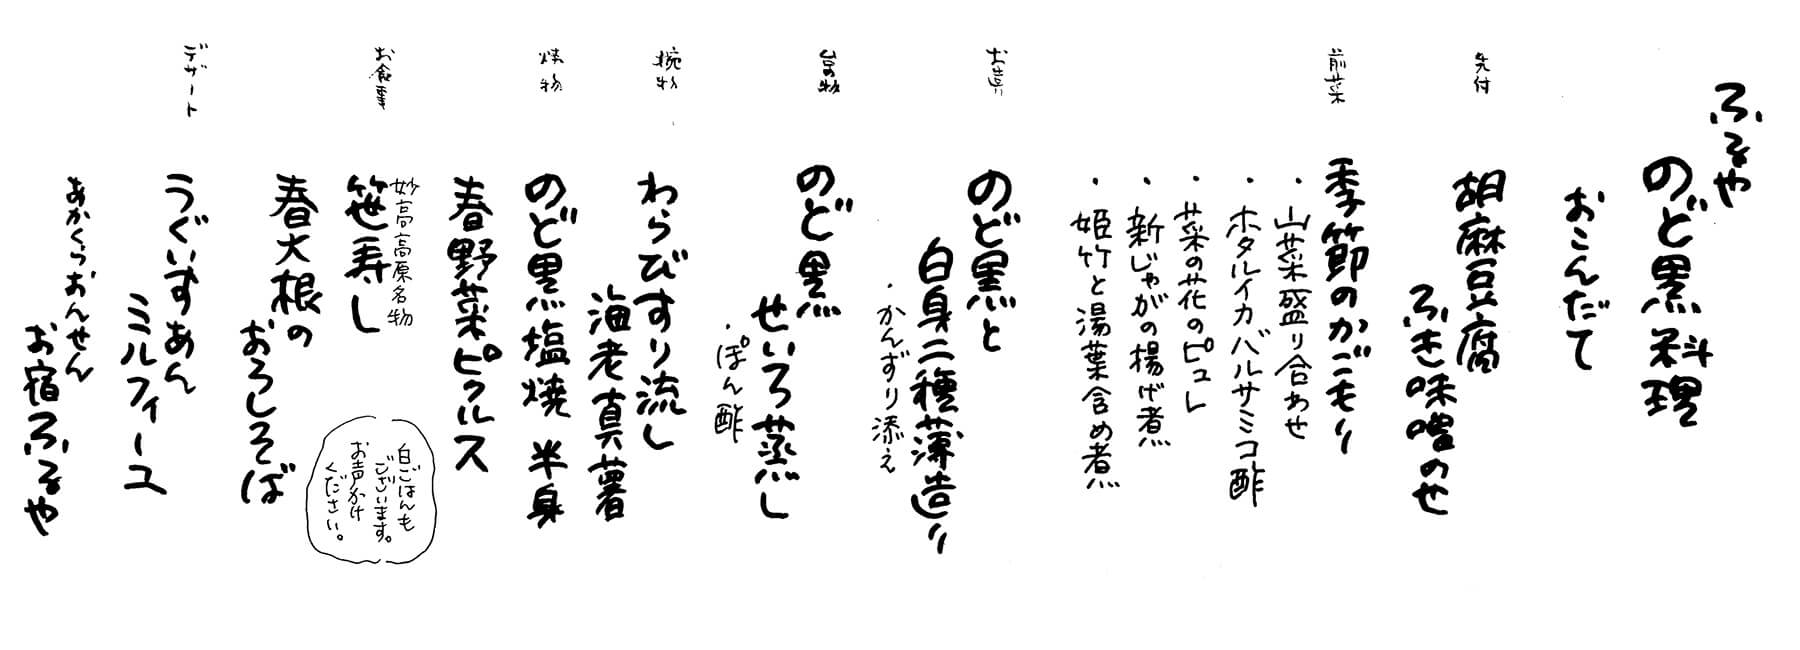 ふるや
のど黒料理
おこんだて
先付
胡麻豆腐
ふき味噌のせ
前菜
季節のかごモリ
・山菜盛り合わせ
・ホタルイカバルサミコ酢
・菜の花のピュレ
・新じゃがの揚げ煮
・姫竹と湯葉含め煮
お造り
のど黒と
白身二種薄造り
・かんずり添え
台の物
のど黒
せいろ蒸し
・ぽん酢
椀物
わらびすり流し
海老真薯
焼物
のど黒塩焼 半身
春野菜ピクルス
お食事
妙高高原名物
笹寿し
春大根の
おろしそば
白ごはんも
ございます。
お声かけ
ください。
デザート
うぐいすあん
ミルフィーユ
あかくらおんせん
お宿ふるや